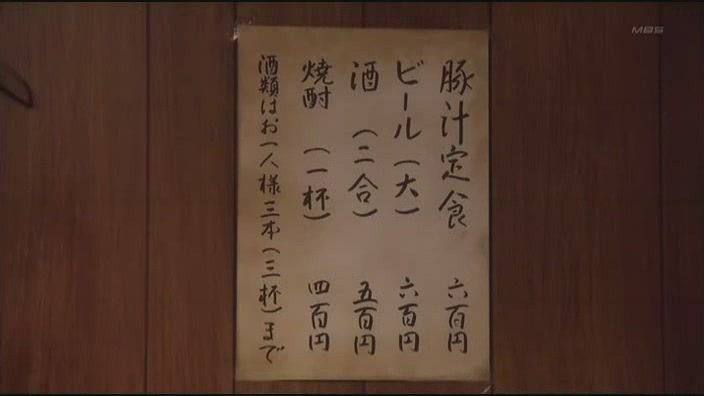 豚汁定食 六百円
ビール(大) 六百円
酒 (二合) 五百円
焼酎 (一杯) 四百円
酒類はお一人様三本(三杯)まで
MBS